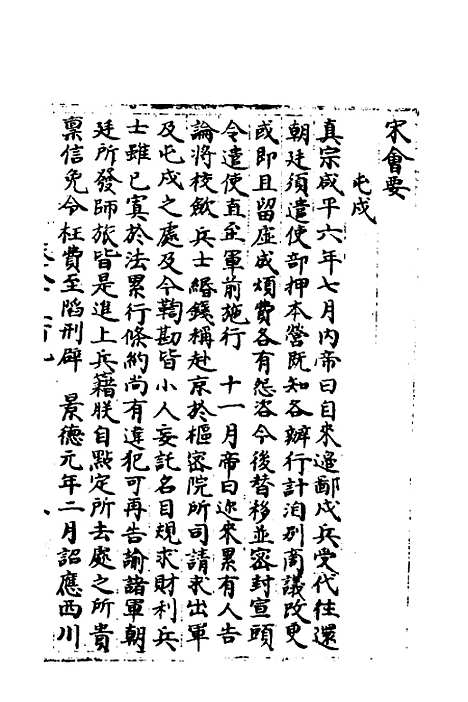 宋會要
屯戍
真宗咸平六年七月內帝曰自來邊鄙戍兵受代往還
朝廷須遣使部押本營既知各辦行計洎別商議改更
或即且留虛成煩費各有怨咨今後替移並密封宣頭
令遣使直至軍前施行　十一月帝曰近來累有人告
論將校歛兵士緡錢稱赴京於樞密院所司請求出軍
及屯戍之處及令鞫勘皆小人妄託名目規求財利兵
士雖已寘於法累行條約尚有違犯可再告諭諸軍朝
廷所發師旅皆是進上兵籍朕自點定所去處之所貴
稟信免令枉費至陷刑辟　景德元年二月詔應西川